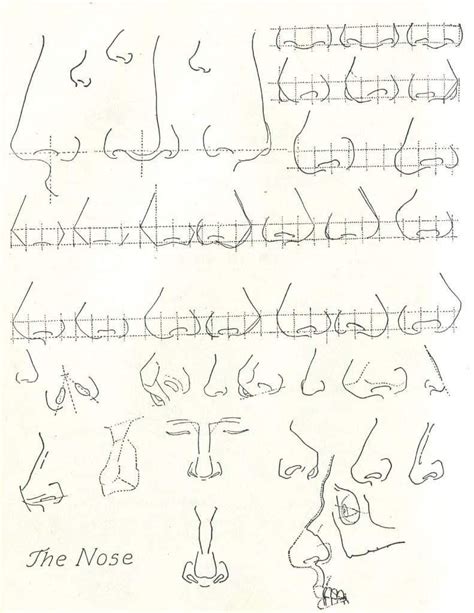 The Nose